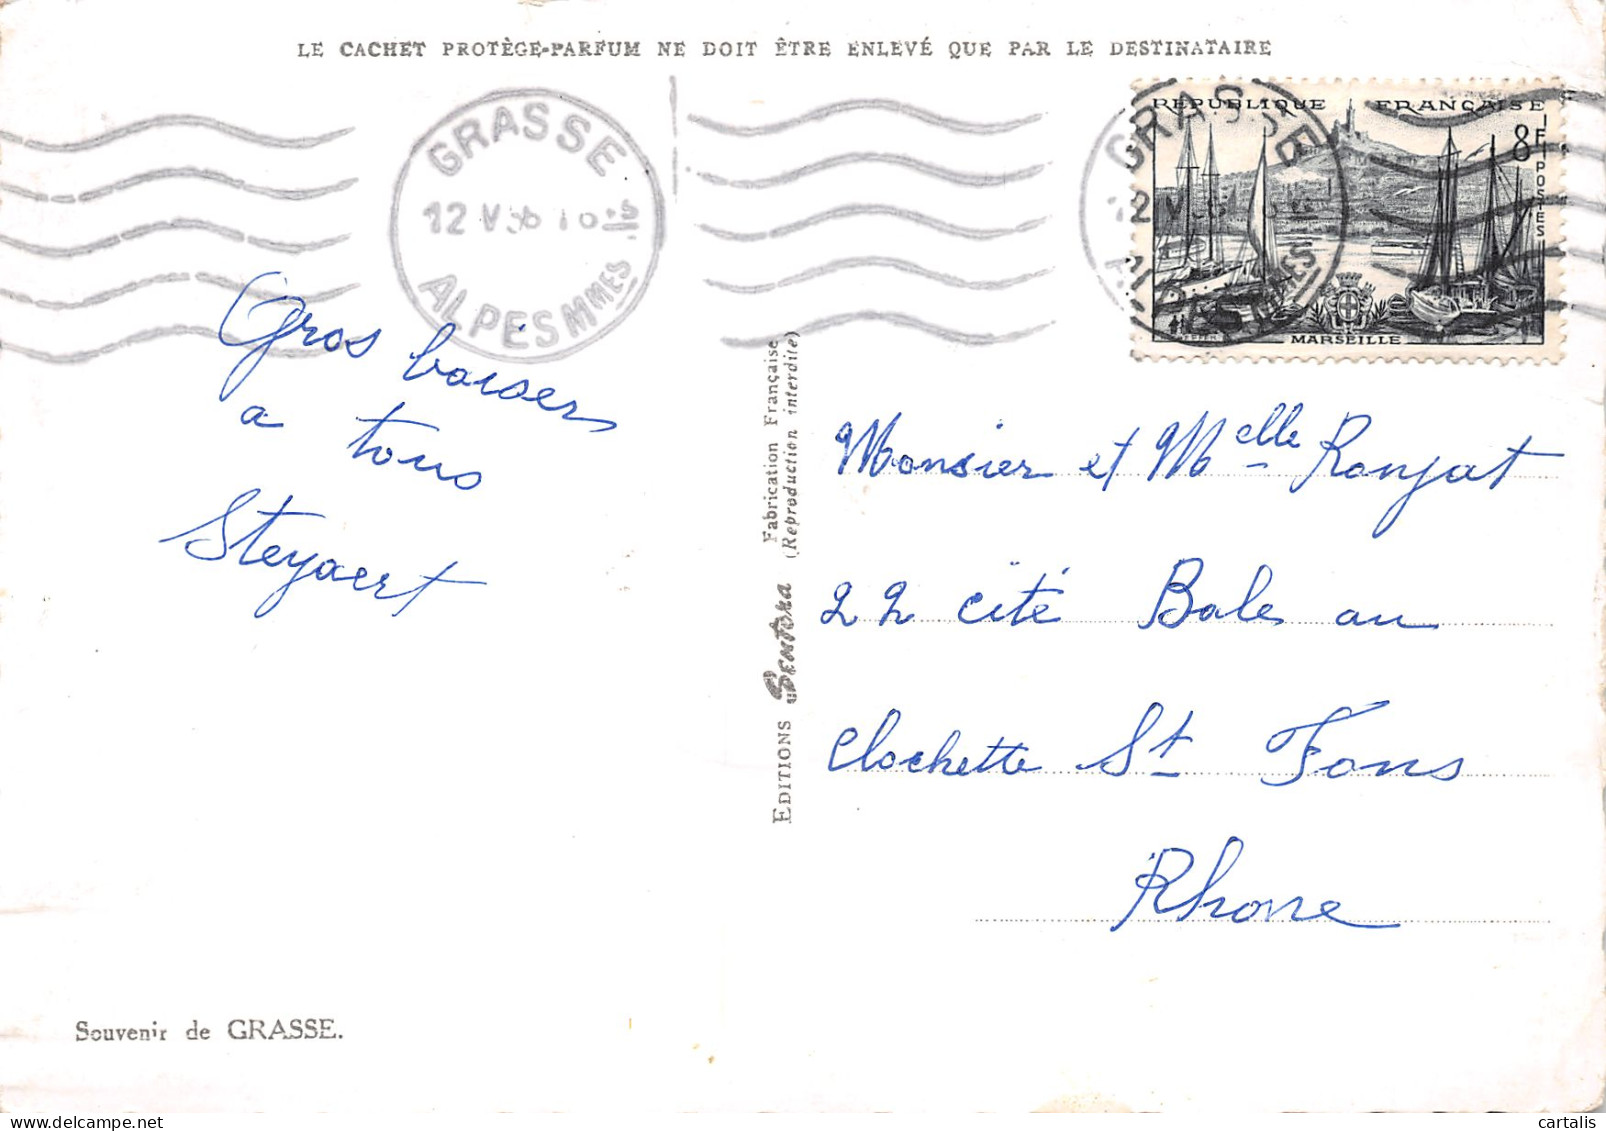 LE CACHET PROTÈGE-PARFUM NE DOIT ÊTRE ENLEVÉ QUE PAR LE DESTINATAIRE
GRASSE
12 V 56
ALPES MMES
GRASSE
REPUBLIQUE FRANÇAISE
8F
POSTES
MARSEILLE
Gros baisers
a tous
Steyaert
EDITIONS Gentora Fabrication Française
(Reproduction interdite)
Monsier et Melle Ronjat
22 cité Bale au
Clochette St Fons
Rhone
Souvenir de GRASSE.
cartalis